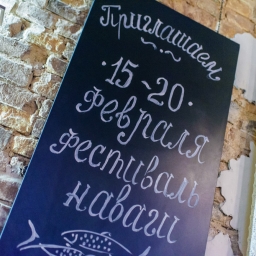 Приглашаем
· 15-20 ·
февраля
фестиваль
наваги